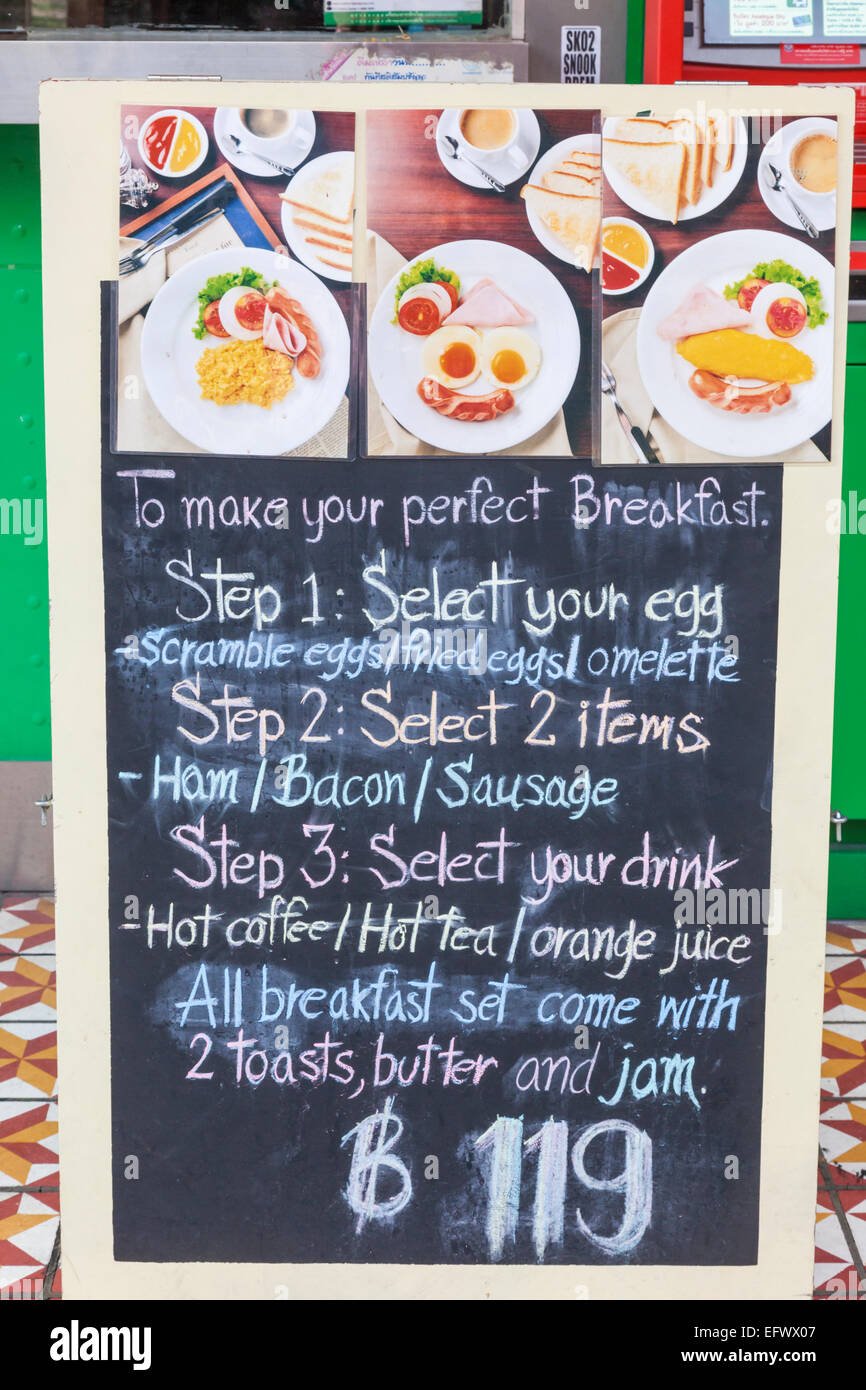 SK02
SNOOK
To make your perfect Breakfast.
Step 1: Select your egg
-Scramble eggs/fried eggs/omelette
Step 2: Select 2 items
-Ham/Bacon/Sausage
Step 3: Select your drink
-Hot coffee/Hot tea/orange juice
All breakfast set come with
2 toasts, butter and jam.
฿ 119
alamy
Image ID: EFWX07
www.alamy.com